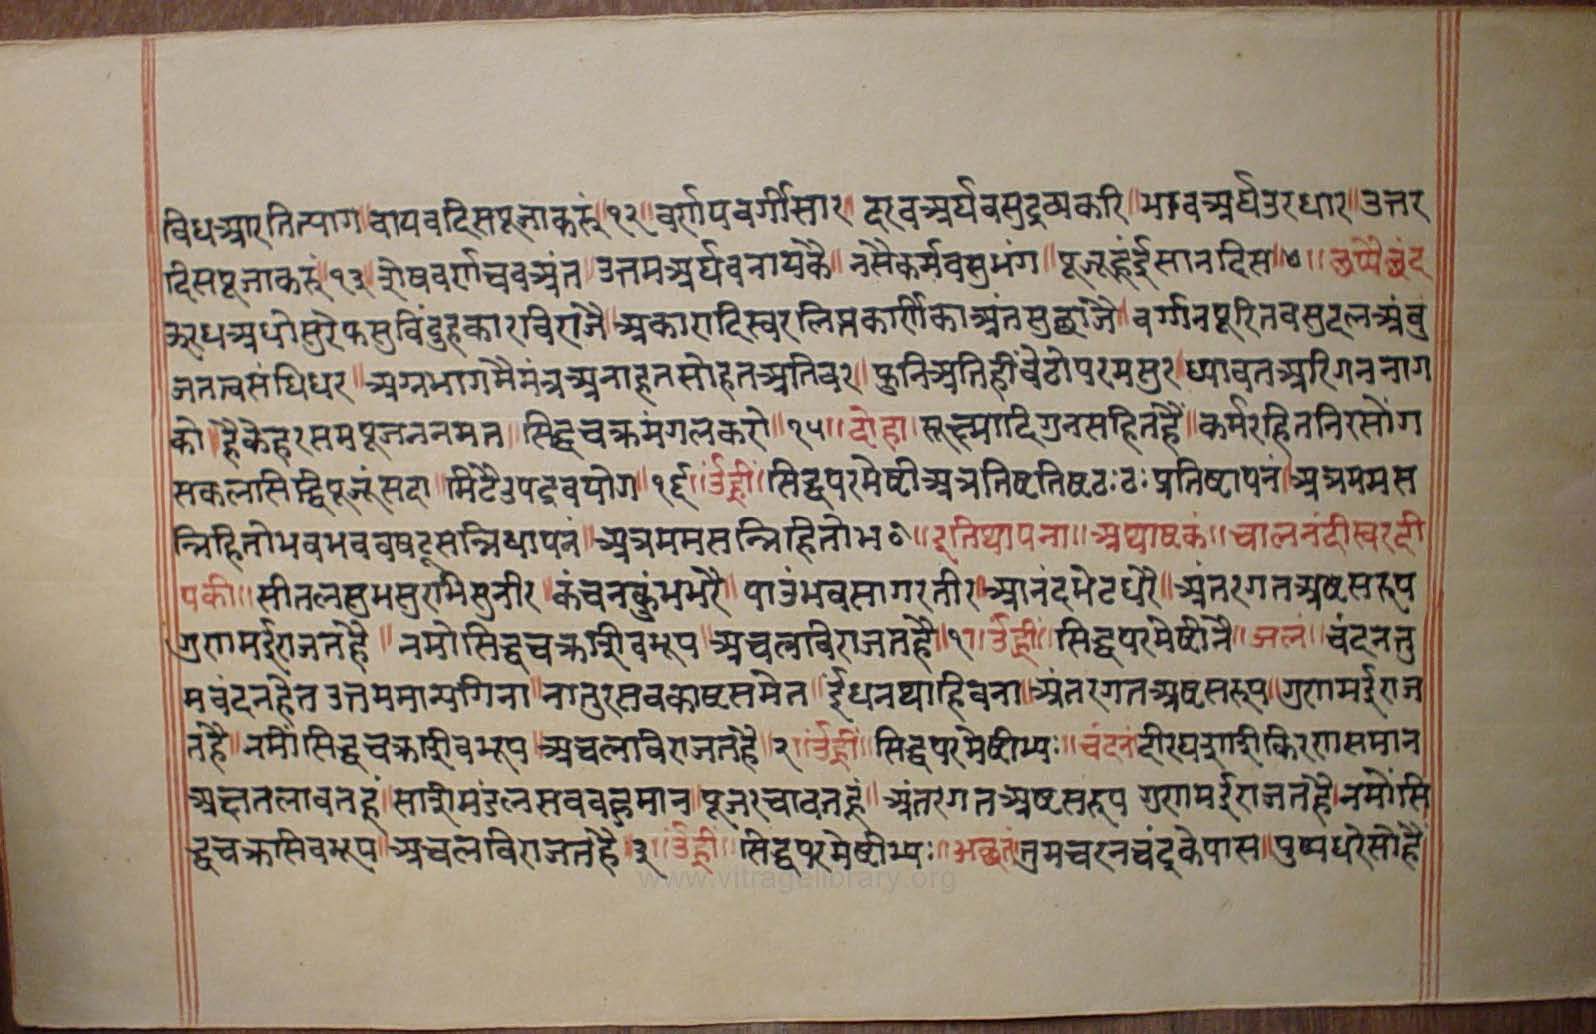 विधआरतित्याग॥वायवदिसपूजाकरूं॥१२॥वर्णपवर्गीसार॥दरवअर्घवसुद्रव्यकरि॥भावअर्घउरधार॥उत्तर
दिसपूजाकरूं॥१३॥शेषवर्णचवअंत॥उत्तमअर्घवनायकै॥नसैकर्मवसुभंग॥पूजूहूंईसानदिस॥१४॥छप्पैछंद
ऊरधअधोसुरेफसुविंदुहकारविराजै॥अकारादिस्वरलिप्तकर्णिकाअंतसुछाजै॥वर्ग्गनपूरितवसुदलअंवु
जतत्वसंधिधर॥अग्रभागमैमंत्रअनाहतसोहतअतिवर॥फुनिअंतिह्रींवेढोपरमसुर॥ध्यावतअरिगननाग
को॥ह्वैकेहरसमपूजननमत॥सिद्धचक्रमंगलकरो॥१५॥दोहा॥सूक्ष्मादिगुनसहितहैं॥कर्मरहितनिरसोग
सकलसिद्धिपूजूंसदा॥मिटैउपद्रवयोग॥१६॥ॐह्रीं॥सिद्धपरमेष्टीअत्रतिष्टतिष्टठःठःप्रतिष्टापनं॥अत्रममस
न्निहितोभवभववषट्सन्निधापनं॥अत्रममसन्निहितोभ०॥इतिथापना॥अथाष्टकं॥चालनंदीस्वरदी
पकी॥सीतलसुभसुरभिसुनीर॥कंचनकुंभभरै॥पाउंभवसागरतीर॥आनंदभेटधरै॥अंतरगतअष्टसरूप
गुणमईराजतहै॥नमोसिद्धचक्रशिवभूप॥अचलविराजतहै॥१॥ॐह्रीं॥सिद्धपरमेष्टीनै॥जलं॥चंदनतु
मवंदनहेत॥उत्तममान्यगिना॥नातुरसवकाष्टसमेत॥ईंधनथाहिवना॥अंतरगतअष्टसरूप॥गुणमईराज
तहै॥नमोंसिद्धचक्रशिवभूप॥अचलविराजतहै॥२॥ॐह्रीं॥सिद्धपरमेष्टीभ्यः॥चंदनं॥दीरघशशिकिरणसमान
अक्षतलावतहूं॥सशिमंडलसववहूमान॥पूजरचावतहूं॥अंतरगतअष्टसरूप॥गुणमईराजतहै॥नमोंसि
द्धचक्रसिवभूप॥अचलविराजतहै॥३॥ॐह्रीं॥सिद्धपरमेष्टीभ्यः॥अछतं॥तुमचरनचंद्रकेपास॥पुष्पधरेसोहै
www.vitragelibrary.org